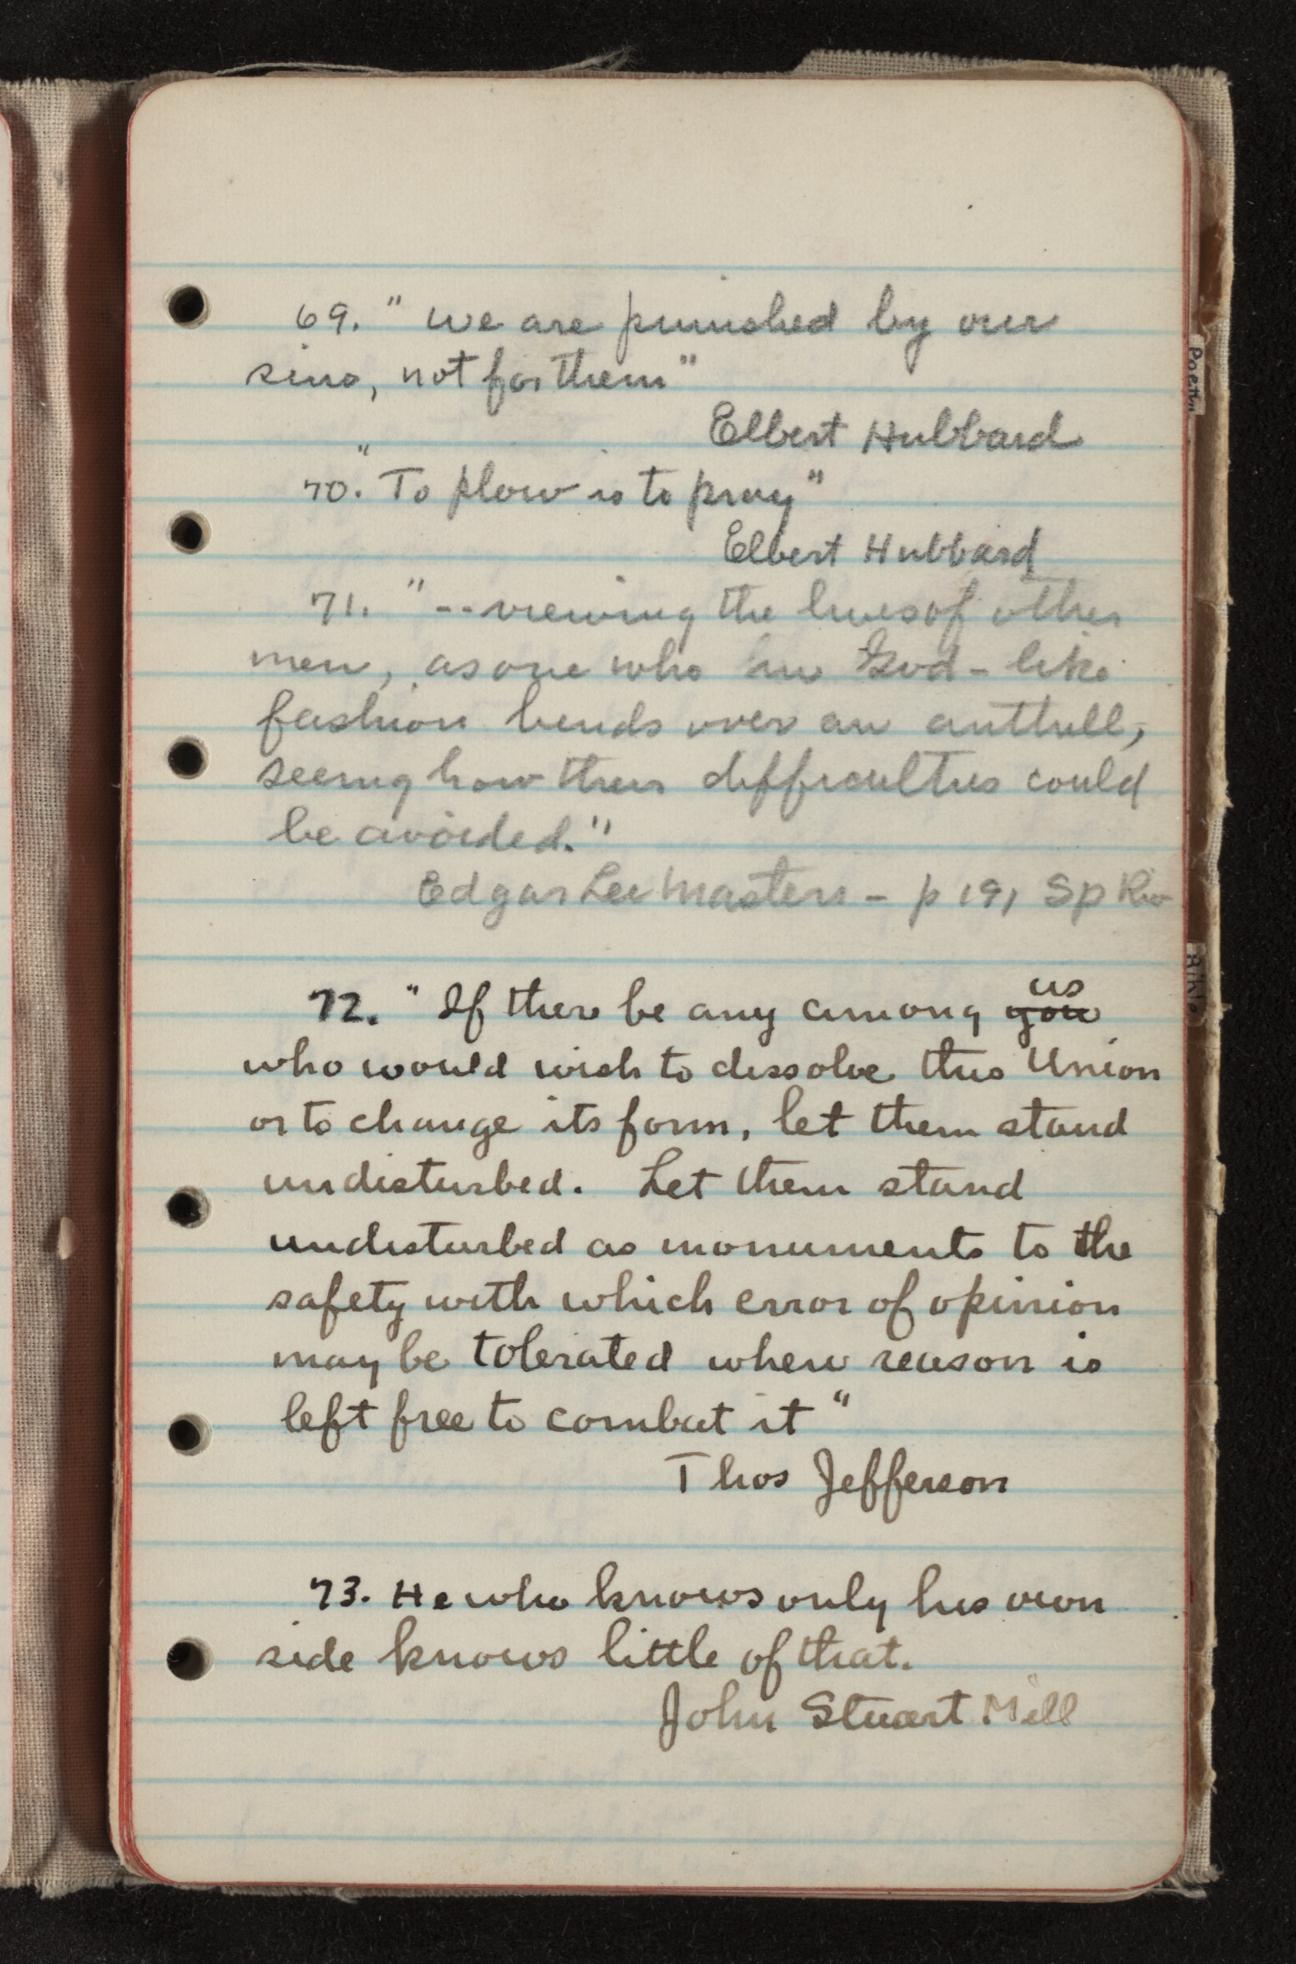 69. " we are punished by our
sins, not for them"
Elbert Hubbard
70. "To plow is to pray"
Elbert Hubbard
71. " -- viewing the lives of other
men, as one who in God-like
fashion bends over an anthill,
seeing how their difficulties could
be avoided."
Edgar Lee Masters - p 191 Sp Riv
us
72. " If there be any among you
who would wish to dissolve this Union
or to change its form, let them stand
undisturbed. Let them stand
undisturbed as monuments to the
safety with which error of opinion
may be tolerated where reason is
left free to combat it "
Thos Jefferson
73. He who knows only his own
side knows little of that.
John Stuart Mill
Poetry
Bible